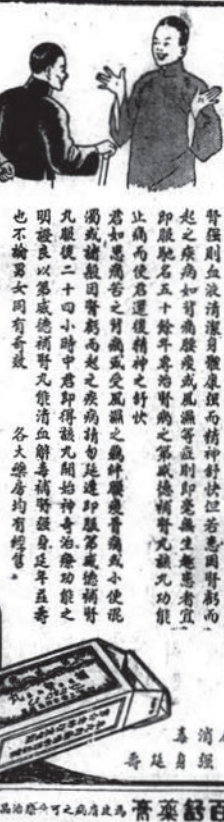 腎强則血液清潔身體康强而精神舒快但若患因腎虧而
起之疾病如背痛腰痠或風濕等症則即毫無生趣患者宜
即服馳名五十餘年專治腎病之第威德補腎丸該丸功能
止痛而使君還復精神之舒快
君如患痛苦之背痛或受風濕之羈絆腰痠骨痛或小便混
濁或諸般因腎虧而起之疾病請勿延遲即服第威德補腎
丸服後二十四小時中君即得該丸開始神奇治療功能之
明證良以第威德補腎丸能清血解毒補腎强身延年益壽
也不論男女同有奇效 各大藥房均有經售
消
毒
强
身
延
壽
百舒藥膏 為皮膚病之可靠療治品